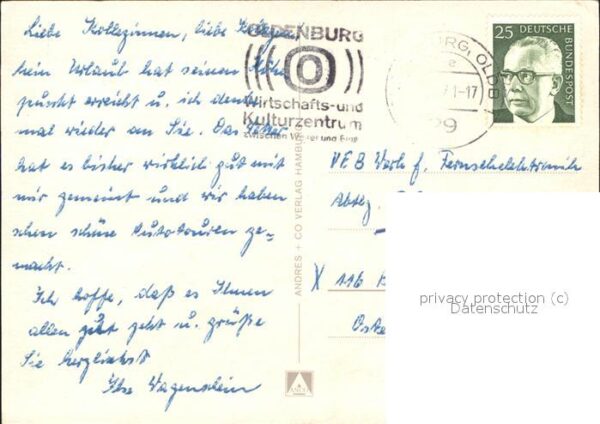 Liebe Kolleginnen, liebe Kollegen,
mein Urlaub hat seinen Höhe
punkt erreicht u. ich denke
mal wieder an Sie. Das Wetter
hat es bisher wirklich gut mit
mir gemeint und wir haben
schon schöne Autotouren ge-
macht.
Ich hoffe, daß es Ihnen
allen gut geht u. grüße
Sie herzlichst
Ihre Wagenstein
OLDENBURG
Wirtschafts-und
Kulturzentrum
zwischen Weser und Ems
BURG, OLDB
1-17
29
25 DEUTSCHE
BUNDESPOST
ANDRES + CO VERLAG HAMBURG
VEB Werk f. Fernsehelektronik
Abtlg.
X 116 B
Oste
privacy protection (c)
Datenschutz